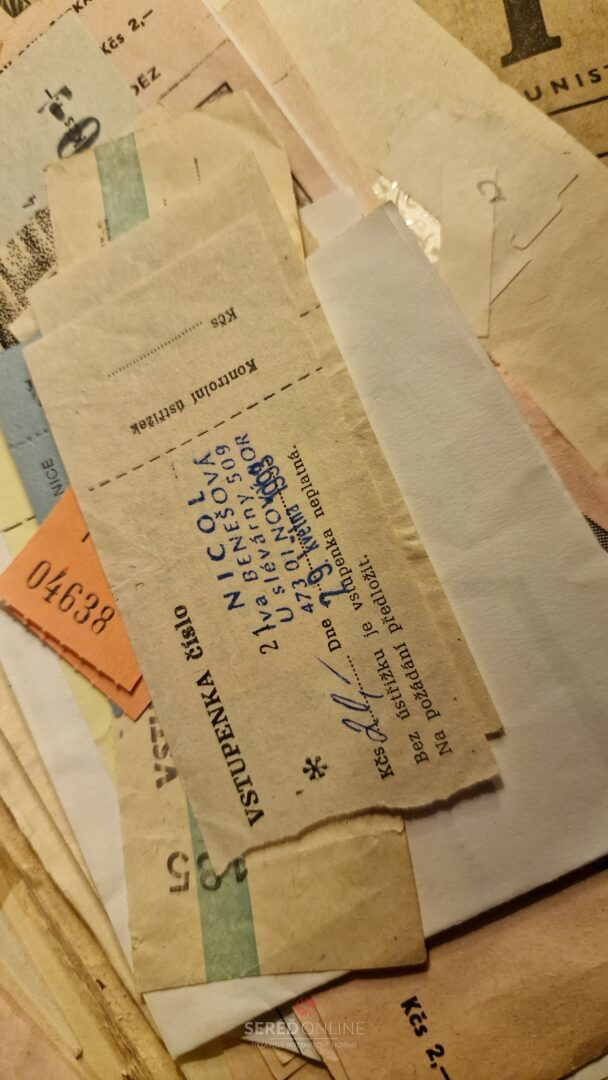 Kčs 2,–
UNIST
Kčs
Kontrolní ústřižek
VSTUPENKA číslo
NICOL
Iva BENEŠOVÁ
U slévárny 509
473 01 NOVÝ BOR
Kčs Dne 29. května 1993
Bez ústřižku je vstupenka neplatná.
Na požádání předložit.
NICE
04638
85
Kčs 2,–
SEREĎONLINE